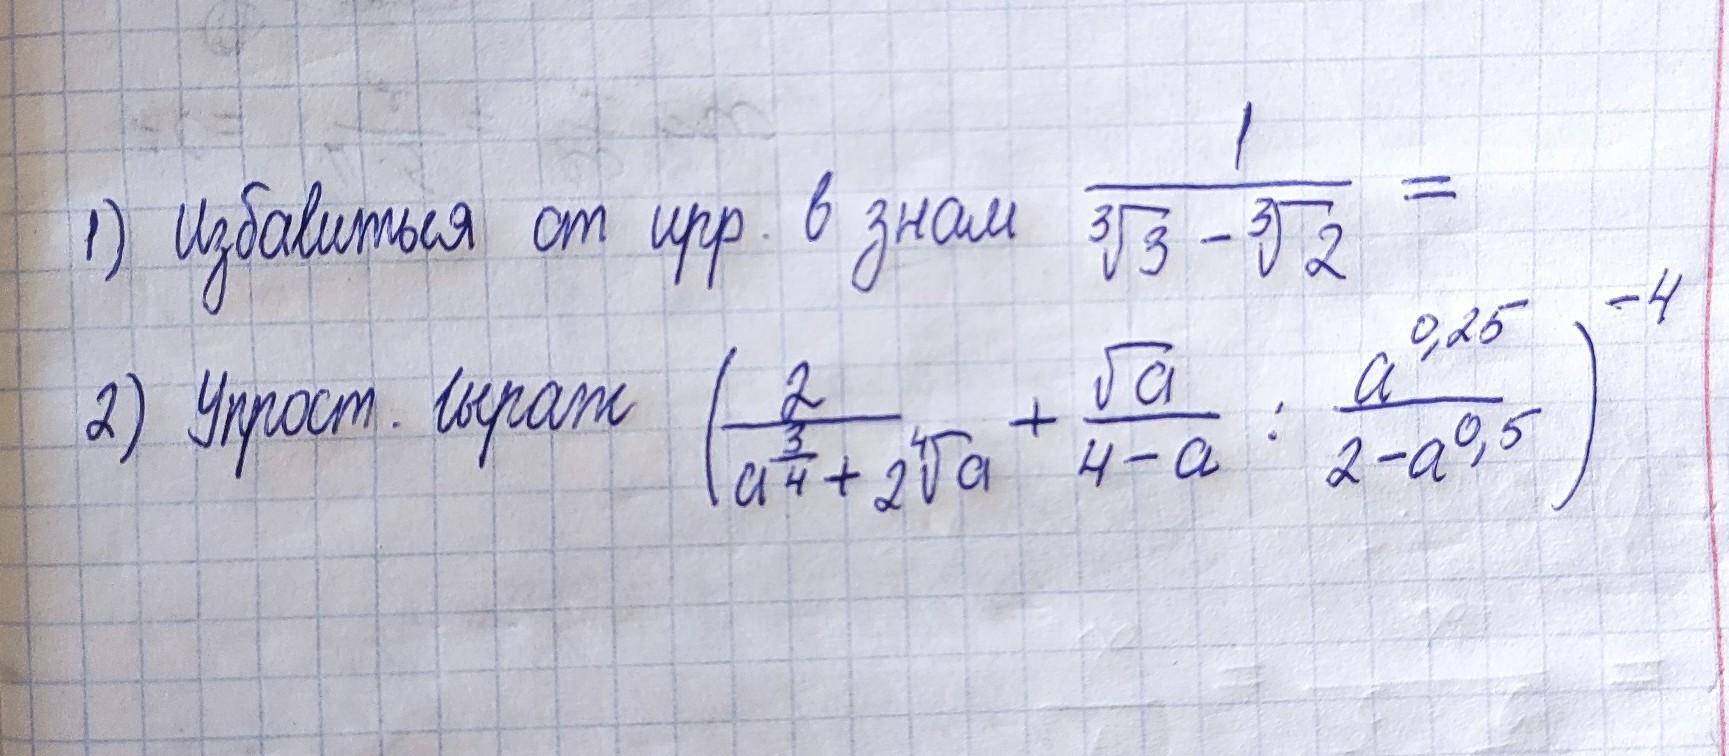 1) Избавиться от ирр. в знам 1/(∛3 - ∛2) =
2) Упрост. выраж (2/(a^(3/4) + 2∜a) + √a/(4 - a) : a^(0,25)/(2 - a^(0,5)))^(-4)